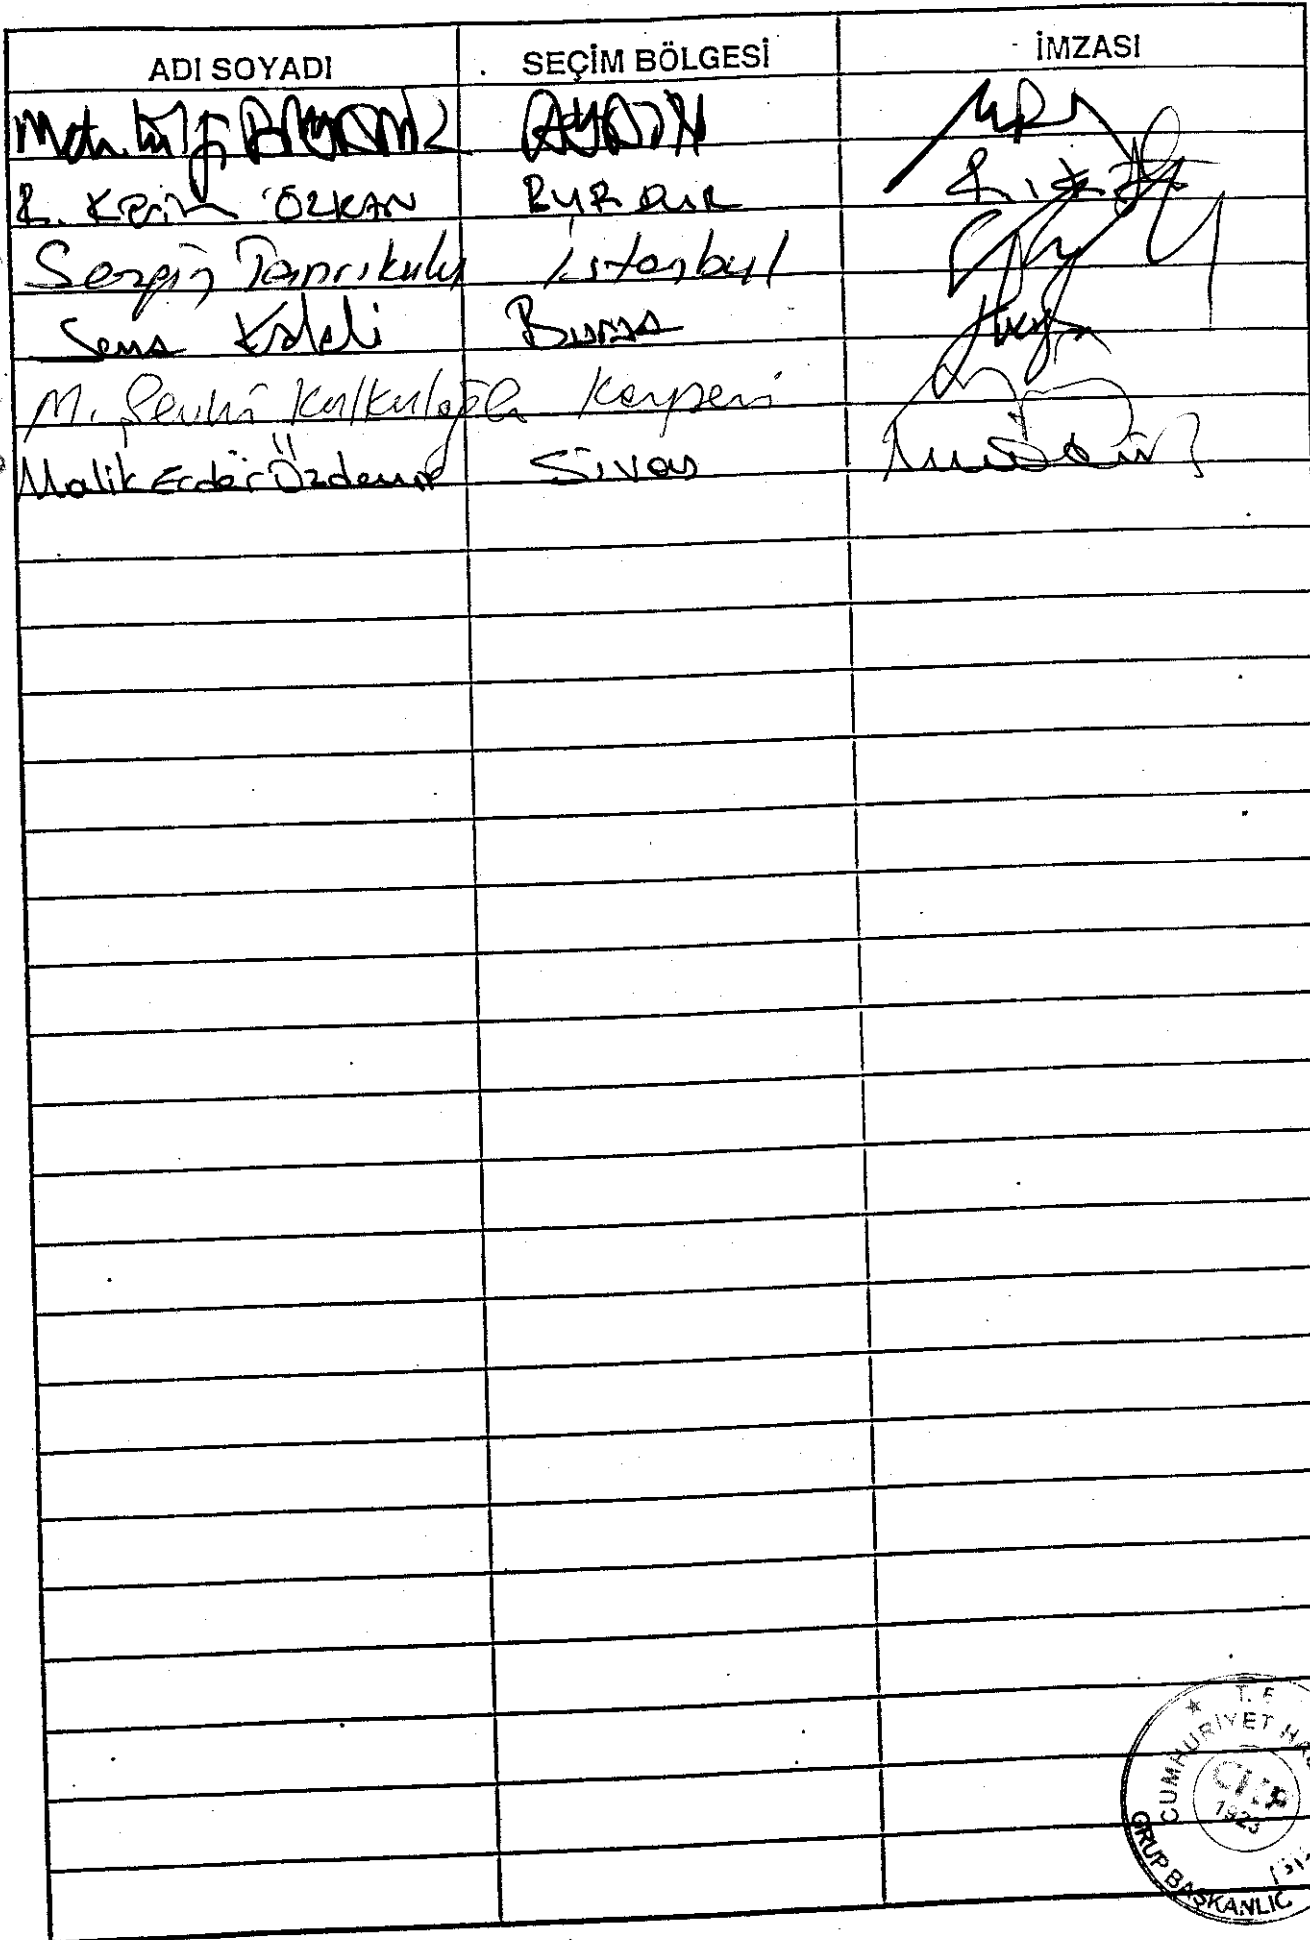 ADI SOYADI SEÇİM BÖLGESİ İMZASI
AYDIN
R. Kerim ÖZKAN BURDUR
Sezgin Tanrıkulu İstanbul
Sena Kaleli Bursa
M. Şevki Kulkuloğlu Kayseri
Malik Ecder Özdemir Sivas
CUMHURİYET
CHP
1923
GRUP BAŞKANLIĞ